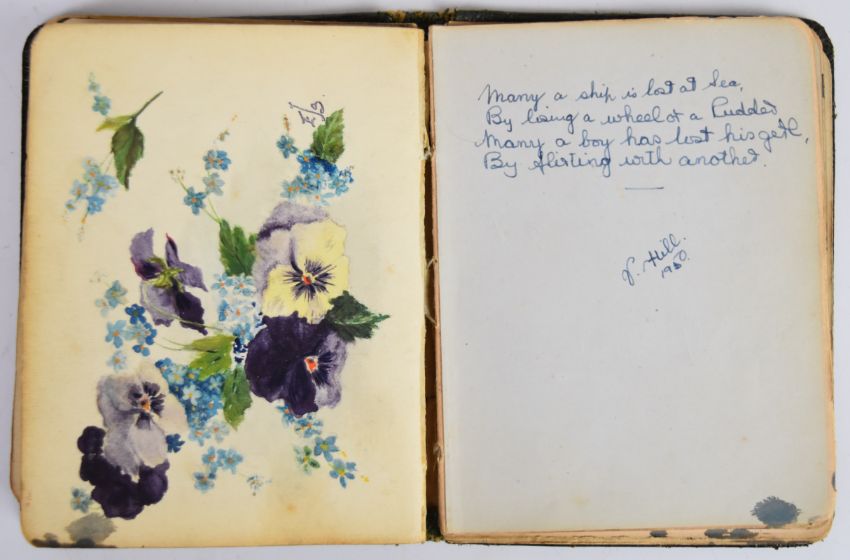 Many a ship is lost at Sea,
By losing a wheel or a Rudder
Many a boy has lost his girl,
By flirting with another.
Hill.
1950.